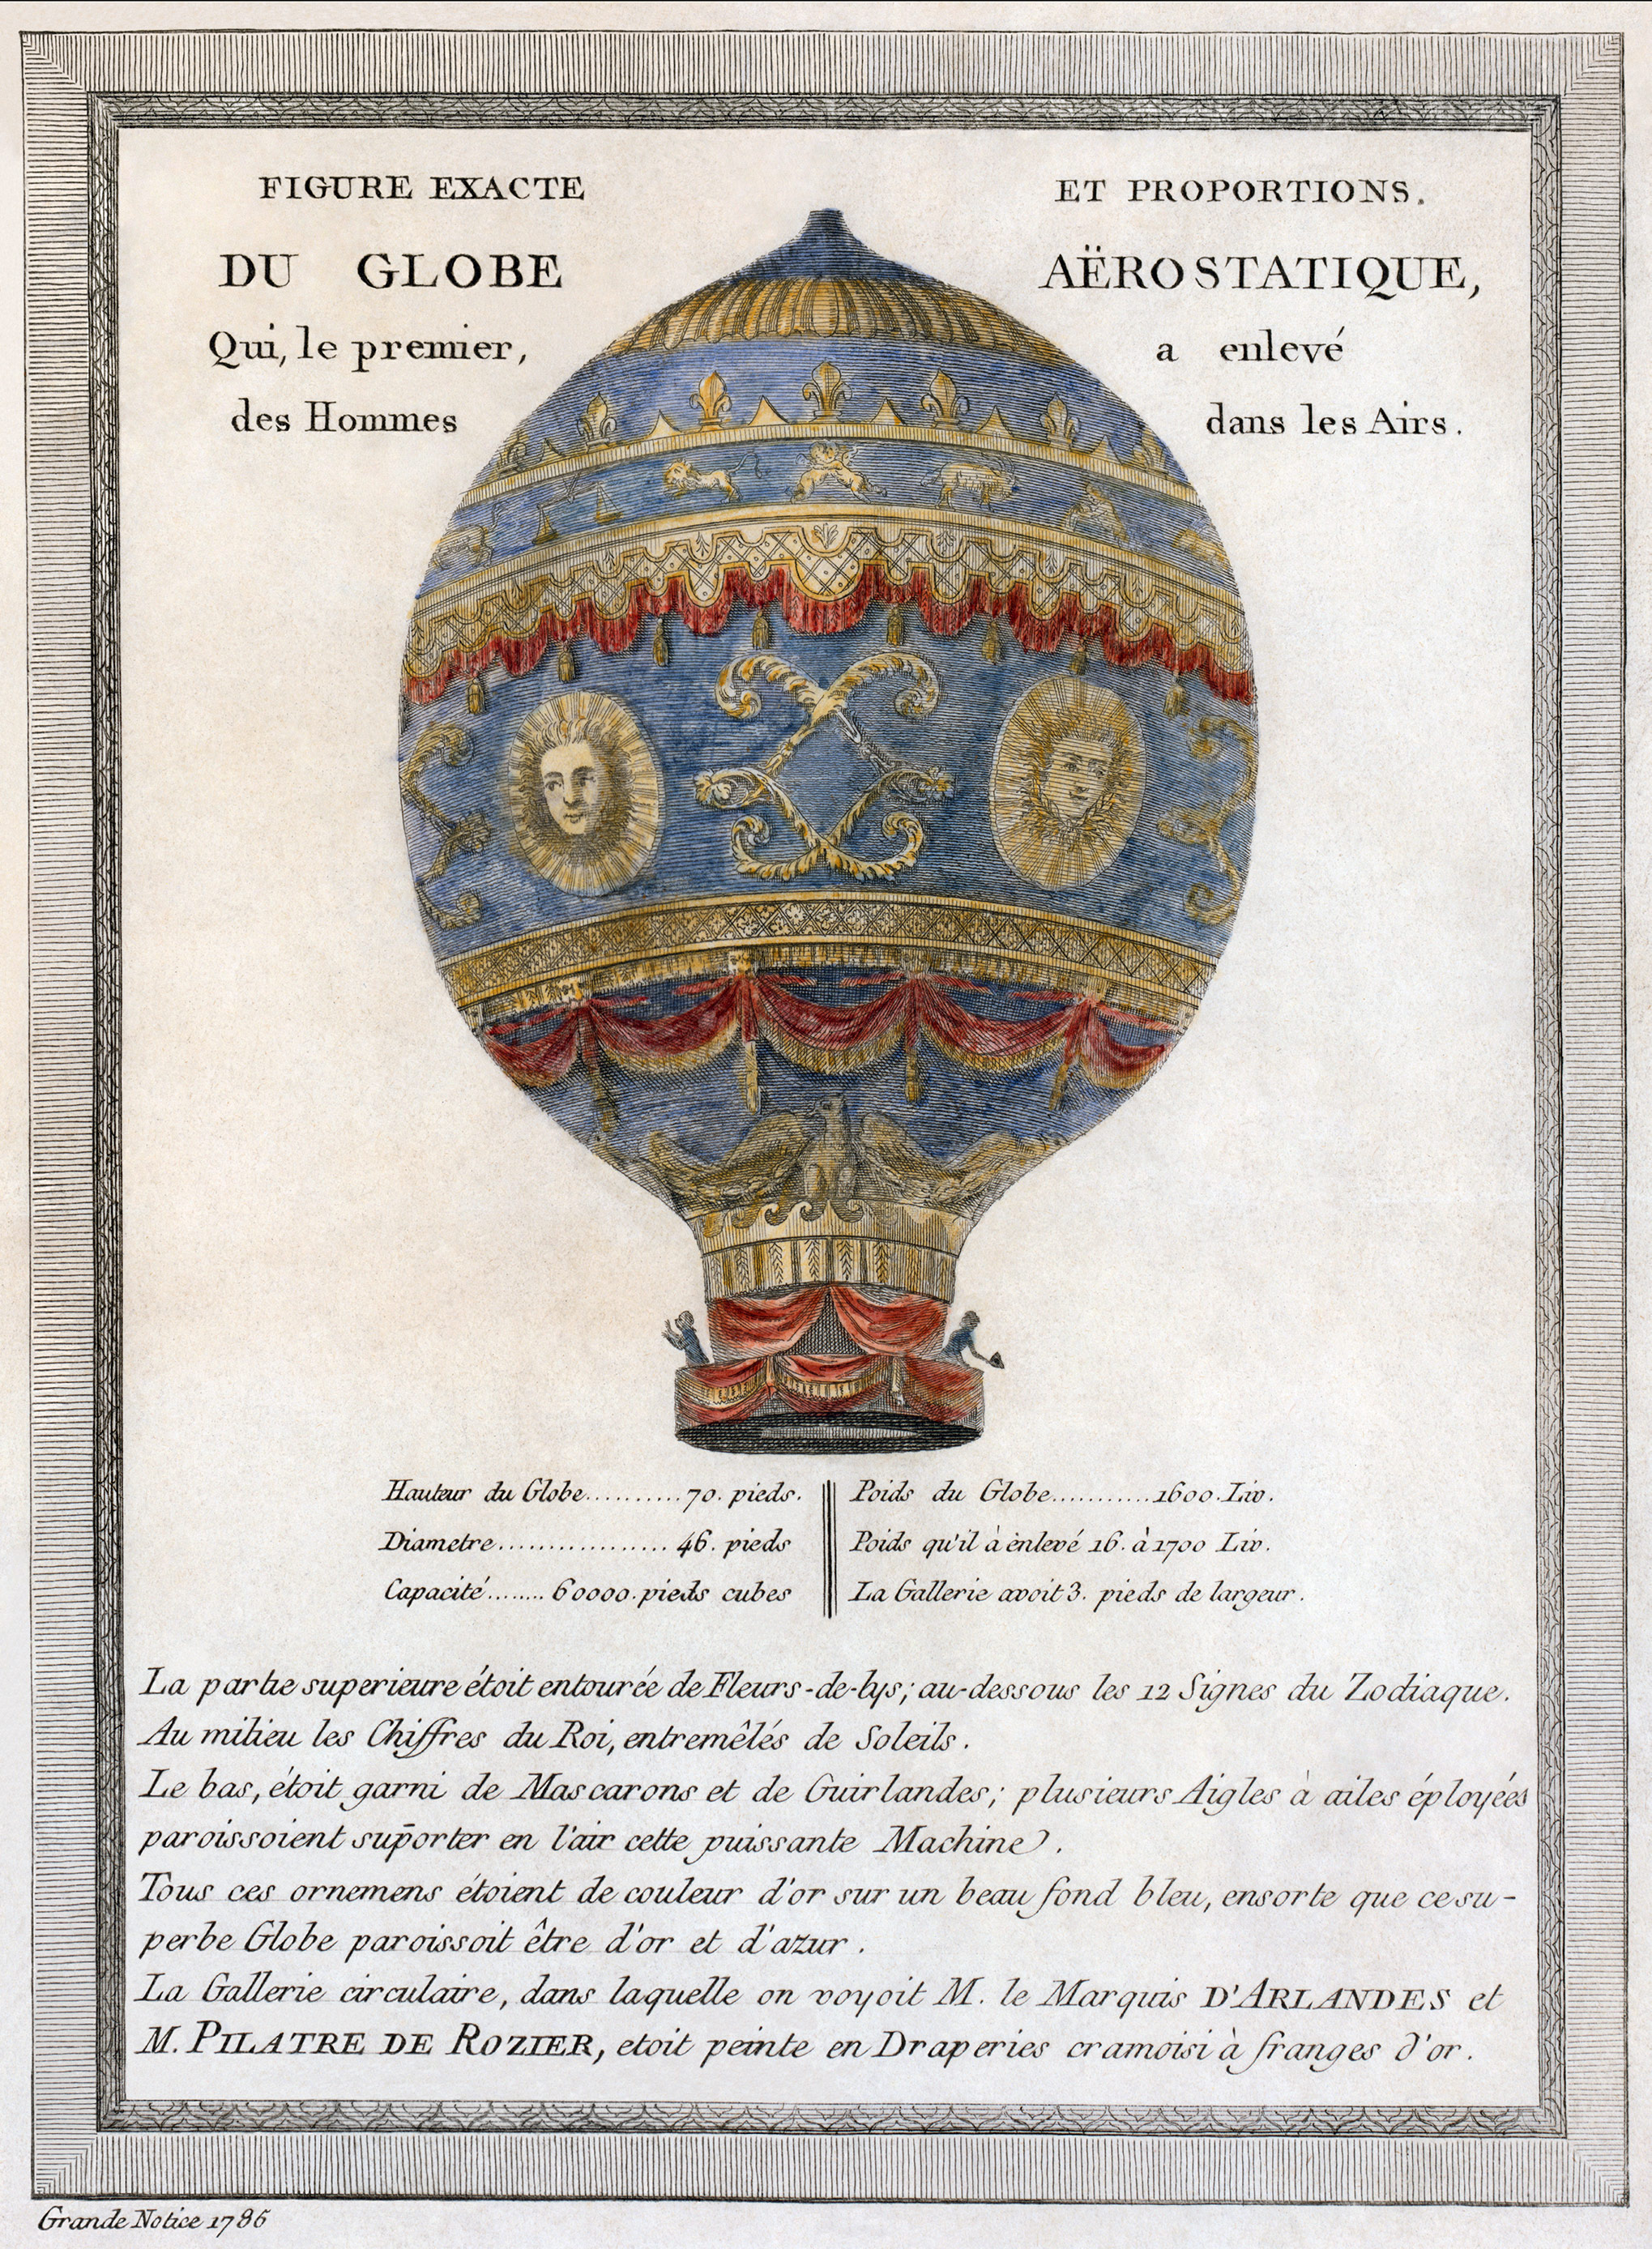 FIGURE EXACTE ET PROPORTIONS.
DU GLOBE AËROSTATIQUE,
Qui, le premier, a enlevé
des Hommes dans les Airs.
Hauteur du Globe..........70. pieds.
Diametre................. 46. pieds
Capacité....... 60000. pieds cubes
Poids du Globe...........1600. Liv.
Poids qu'il à ènlevé 16. à 1700 Liv.
La Gallerie avoit 3. pieds de largeur.
La partie superieure étoit entourée de Fleurs-de-lys; au-dessous les 12 Signes du Zodiaque.
Au milieu les Chiffres du Roi, entremêlés de Soleils.
Le bas, étoit garni de Mascarons et de Guirlandes; plusieurs Aigles à ailes éployées
paroissoient sup̄orter en l'air cette puissante Machine.
Tous ces ornemens étoient de couleur d'or sur un beau fond bleu, ensorte que ce su-
perbe Globe paroissoit être d'or et d'azur.
La Gallerie circulaire, dans laquelle on voyoit M. le Marquis D'ARLANDES et
M. PILATRE DE ROZIER, etoit peinte en Draperies cramoisi à franges d'or.
Grande Notice 1786